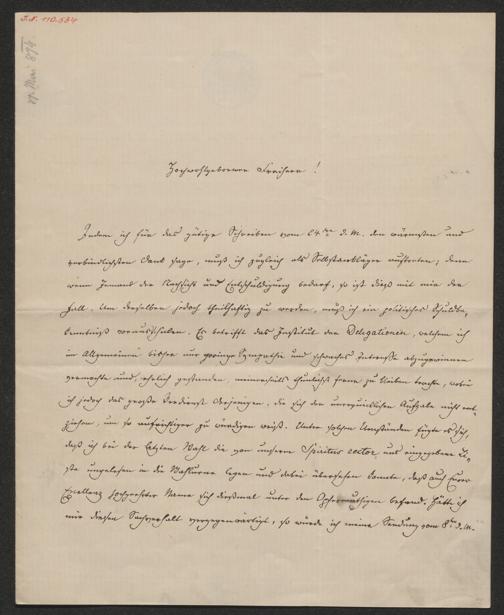 I.N. 110.554
Mai 874
Hochwohlgeborener Freiherr!
Indem ich für das gütige Schreiben vom 24ten d. M. den wärmsten und
verbindlichsten Dank sage, muß ich zugleich als Selbstankläger auftreten; denn
wenn Jemand der Nachsicht und Entschuldigung bedarf, so ist dieß mit mir der
Fall. Um derselben jedoch theilhaftig zu werden, muß ich ein politisches Schuldbe-
kenntniß vorausschicken. Es betrifft das Institut der Delegationen, welchem ich
im Allgemeinen bisher nur geringe Sympathie und schwaches Interesse abzugewinnen
vermochte und, ehrlich gestanden, meinerseits thunlichst ferne zu bleiben trachte, wobei
ich jedoch das große Verdienst derjenigen, die sich der unerquicklichen Aufgabe nicht ent-
ziehen, um so aufrichtiger zu würdigen weiß. Unter solchen Umständen fügte es sich,
daß ich bei der letzten Wahl die von unserem Spiritus rector uns eingegebene Li-
ste ungelesen in die Wahlurne legen und dabei übersehen konnte, daß auch Euer
Exellenz hochverehrter Name sich dießmal unter den Opfermuthigen befand. Hätte ich
mir diesen Sachverhalt vergegenwärtigt, so würde ich meine Sendung vom 8ten d. M.